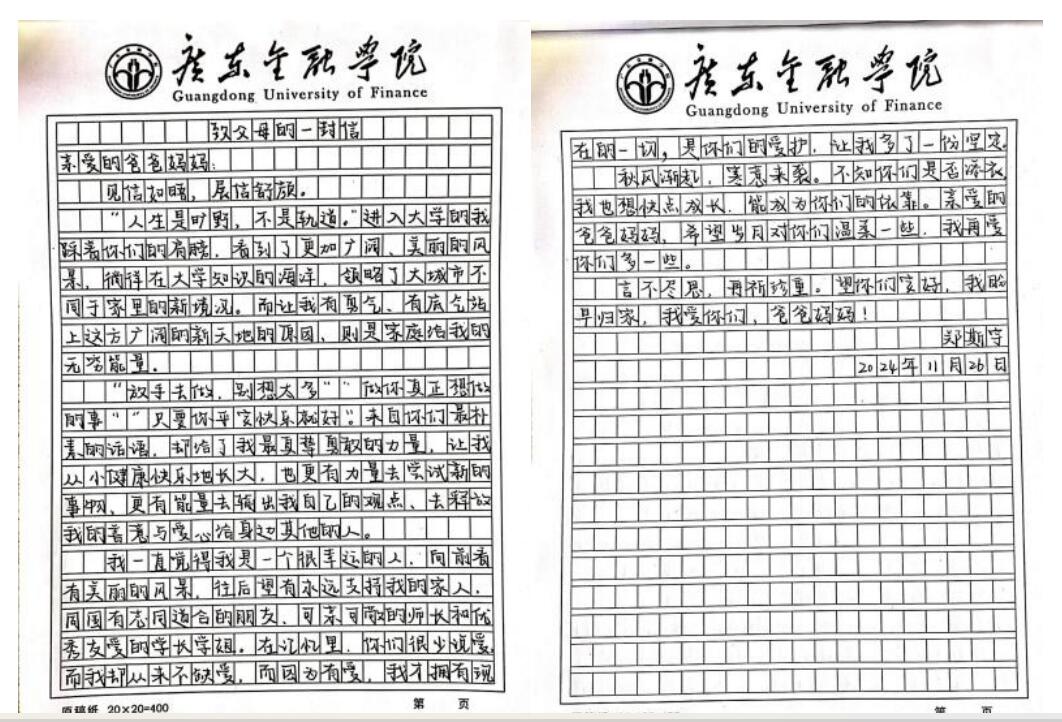 广东金融学院
Guangdong University of Finance
致父母的一封信
亲爱的爸爸妈妈：
见信如晤，展信舒颜。
“人生是旷野，不是轨道。”进入大学的我
踩着你们的肩膀，看到了更加广阔、美丽的风
景，徜徉在大学知识的海洋，领略了大城市不
同于家里的新境况。而让我有勇气、有底气站
上这方广阔的新天地的原因，则是家庭给我的
无穷能量。
“放手去做，别想太多”“做你真正想做
的事”“只要你平安快乐就好”。来自你们最朴
素的话语，却给了我最真挚勇敢的力量，让我
从小健康快乐地长大，也更有力量去尝试新的
事物、更有能量去输出我自己的观点、去释放
我的善意与爱心给身边其他的人。
我一直觉得我是一个很幸运的人，向前看
有美丽的风景，往后望有永远支持我的家人，
周围有志同道合的朋友、可亲可敬的师长和优
秀友爱的学长学姐。在记忆里，你们很少说爱，
而我却从来不缺爱，而因为有爱，我才拥有现
原稿纸 20×20=400
第 页
广东金融学院
Guangdong University of Finance
在的一切，是你们的爱护，让我多了一份坚定。
秋风渐起，寒意来袭。不知你们是否添衣，
我也想快点成长，能成为你们的依靠。亲爱的
爸爸妈妈，希望岁月对你们温柔一些，我再爱
你们多一些。
言不尽思，再祈珍重。望你们安好，我盼
早归家，我爱你们，爸爸妈妈！
郑斯宇
2024年11月26日
第 页